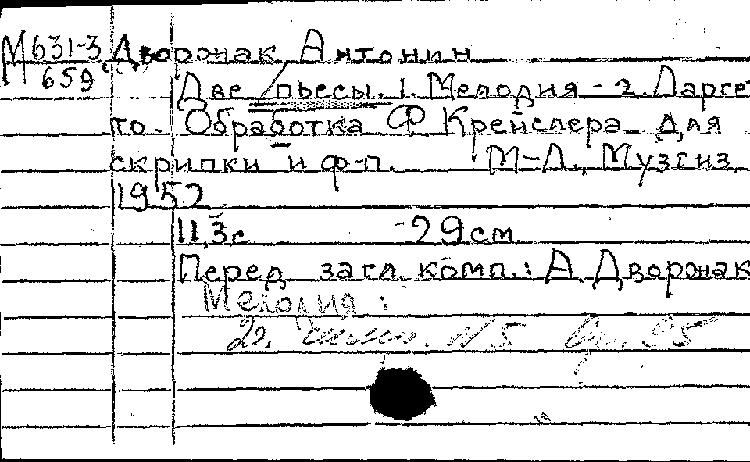 М631-3 Дворжак Антонин
659
Две /пьесы. 1. Мелодия - 2. Ларгет
то. Обработка Ф Крейслера для
скрипки и ф-п. М-Л., Музгиз,
1952
11,3с -29см
Перед загл. комп.: А Дворжак
Мелодия: